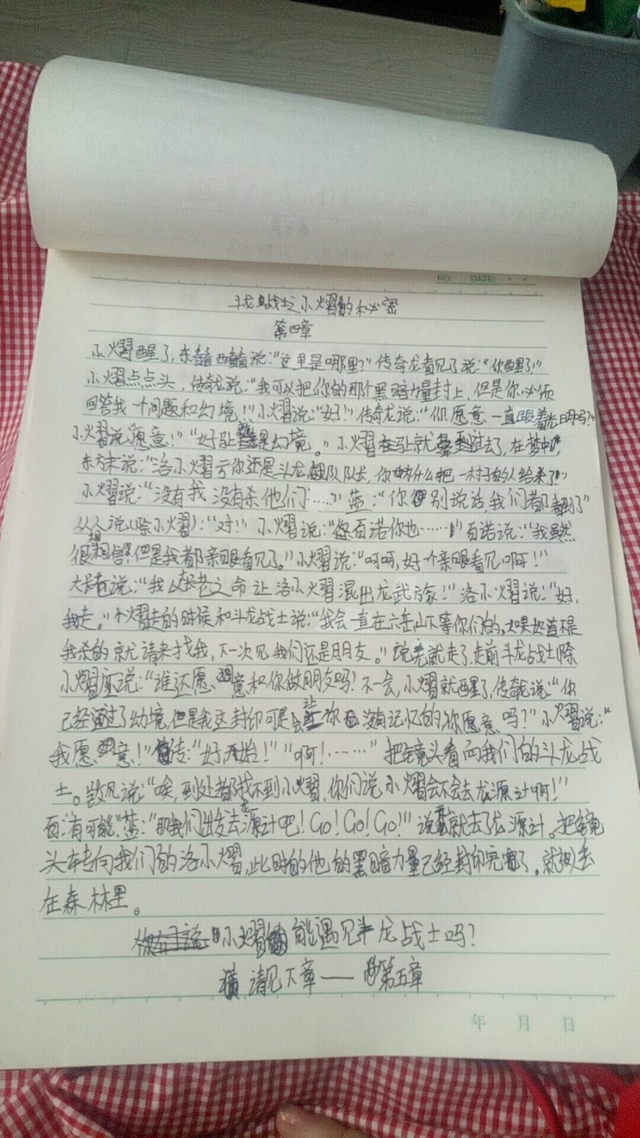 NO.
DATE:
斗龙战士小熠的秘密
第四章
小熠醒了，东瞧西瞧说：“这里是哪里？”传奇龙看见了说：“你醒了”
小熠点点头，传龙说：“我可以把你的那个黑暗力量封上，但是你必须
回答我一个问题和幻境！”小熠说：“好”传奇龙说：“你愿意一直跟着光明吗？”
小熠说“愿意！”“好让是幻境。”小熠在就过去了，在梦中
东方末说：“洛小熠亏你还是斗龙队队长，你为什么把一村子的人给杀了！”
小熠说：“没有我没有杀他们……”蓝：“你别说话我们都了”
众人说（除小熠）：“对！”小熠说：“百诺你也……”百诺说：“我虽然
很想但是我都亲眼看见了。”小熠说：“呵呵，好一个亲眼看见啊！”
大说：“我以之命让洛小熠混出龙武族！”洛小熠说：“好，
我走。”小熠走的时候和斗龙战士说：“我会一直在山下等你们的，如果知道不是
我杀的就请来找我，下一次见我们还是朋友。”说完就走了，走前斗龙战士除
小熠说：“谁还愿意和你做朋友吗？不会，小熠就醒了，传龙说“你
已经通过了幻境，但是我这封印可是会让你没有记忆的你愿意吗？”小熠说：“
我愿意！”传：“好开始！”“啊！……”把镜头看向我们的斗龙战
士。凯风说：“唉，到处都找不到小熠，你们说小熠会不会去龙源计啊！”
百：“有可能”蓝：“那我们出发去源计吧！GO！GO！GO！”说就去了龙源计。把镜
头转向我们的洛小熠，此时的他的黑暗力量已经封印完了，就被丢
在森林里。
小熠能遇见斗龙战士吗？
请见下章——第五章
年 月 日